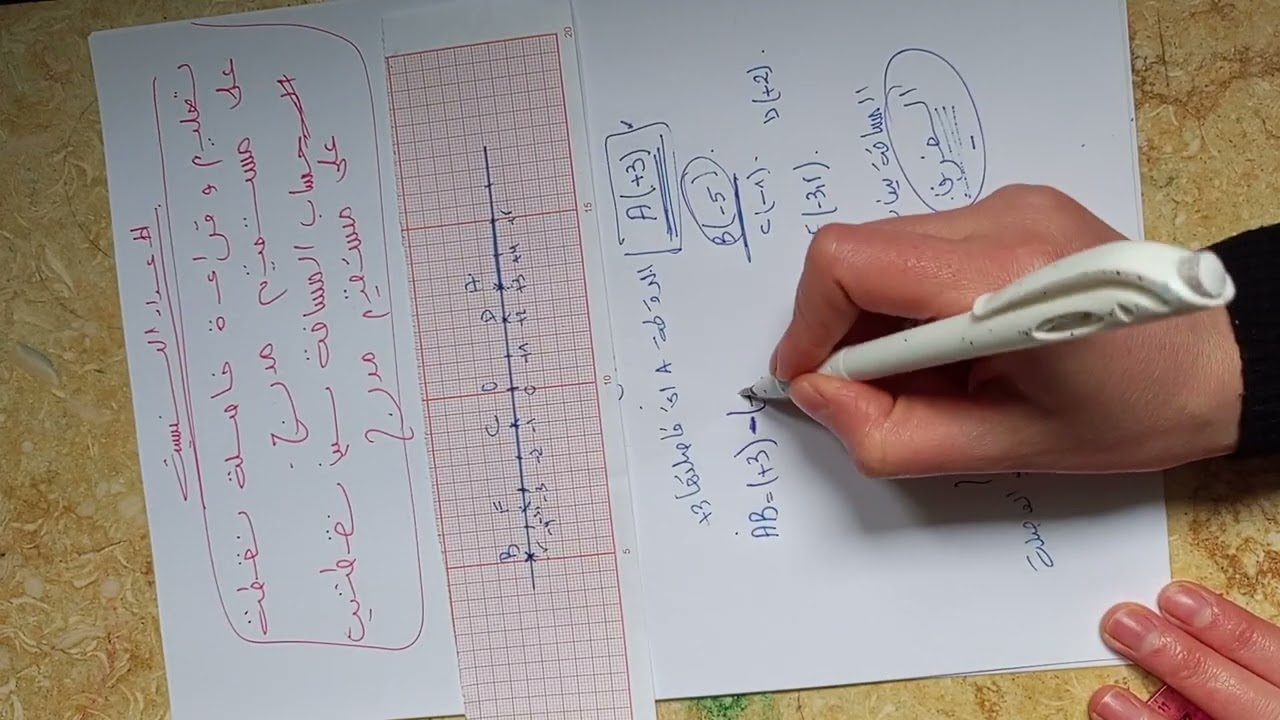 الأعداد النسبية
تعليم و قراءة فاصلة نقطة
على مستقيم مدرج
حساب المسافة بين نقطتين
على مستقيم مدرج
B F C O D A
-5 -4 -3 -2 -1 0 +1 +2 +3 +4
5 10 15 20
النقطة A ذي فاصلتها +3
A(+3)
B(-5).
C(-1). D(+2).
(-3,5).
AB=(+3)-(
المسافة بين
الفرق